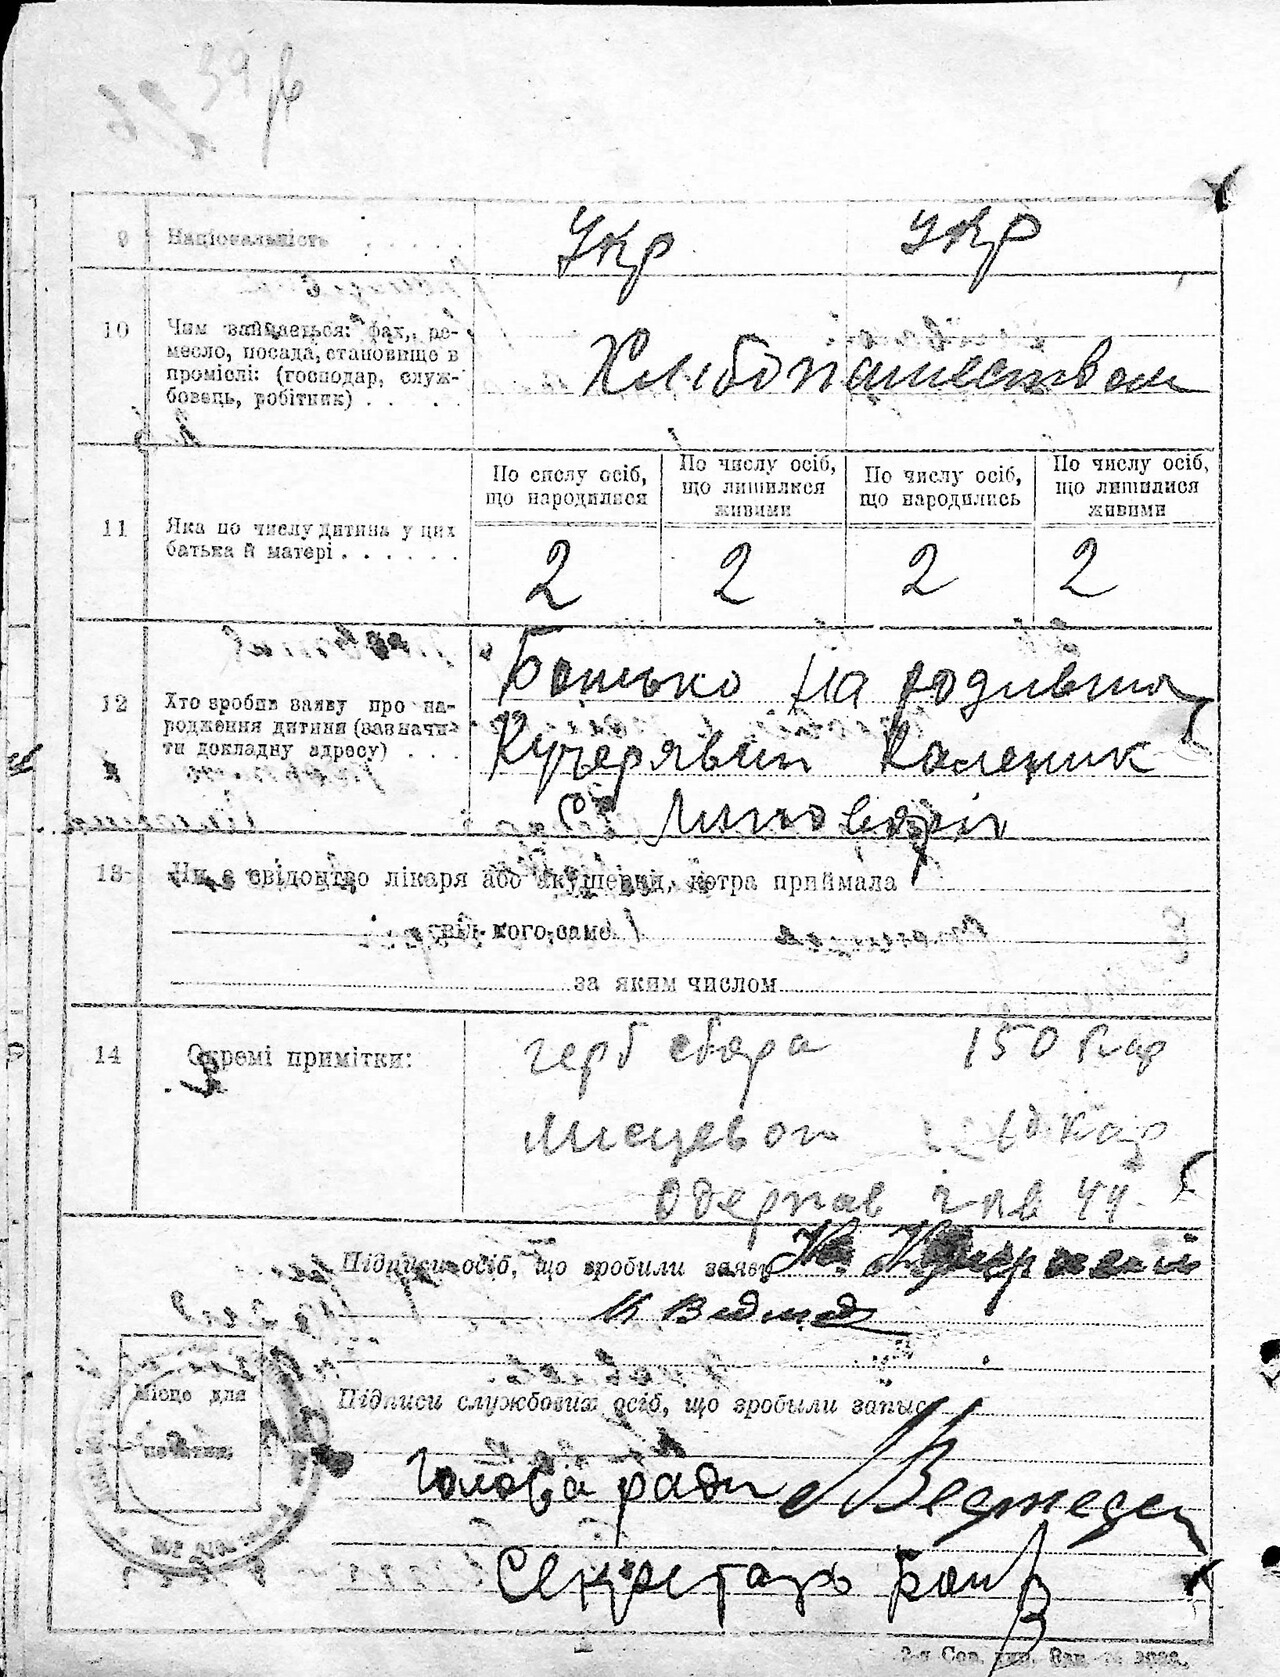 39
9 Національність . . . . . Укр Укр
10 Чим займається: фах, ре-
месло, посада, становище в
проміслі: (господар, служ-
бовець, робітник) . . . .
Хлібопашеством
По числу осіб, що народилися
По числу осіб, що лишилися живими
По числу осіб, що народились
По числу осіб, що лишилися живими
11 Яка по числу дитина у цих
батька й матері . . . . . .
2 2 2 2
12 Хто зробив заяву про на-
родження дитини (зазначи-
ти докладну адресу) . . .
Батько
Кучерявий Каленик
13 Чи є свідоцтво лікаря або акушерки, котра приймала
від кого саме
за яким числом
14 Окремі примітки:
герб сбора 150 кар
Мисцевої 10 кар
Одержав
Підписи осіб, що зробили заяву
Підписи службових осіб, що зробыли запис
Місце для
печатки
Голова ради
Секретарь